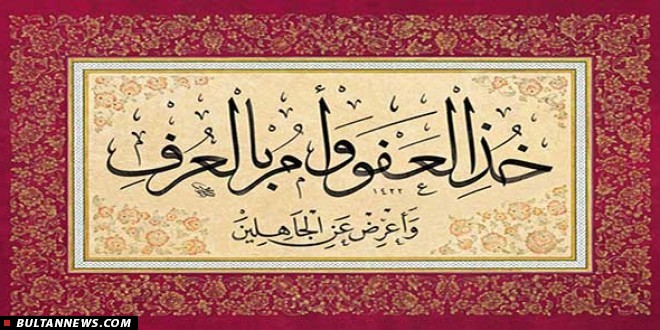 خُذِ الْعَفْوَ وَأْمُرْ بِالْعُرْفِ
١٤٢٢
وَأَعْرِضْ عَنِ الْجَاهِلِينَ
BULTANNEWS.COM